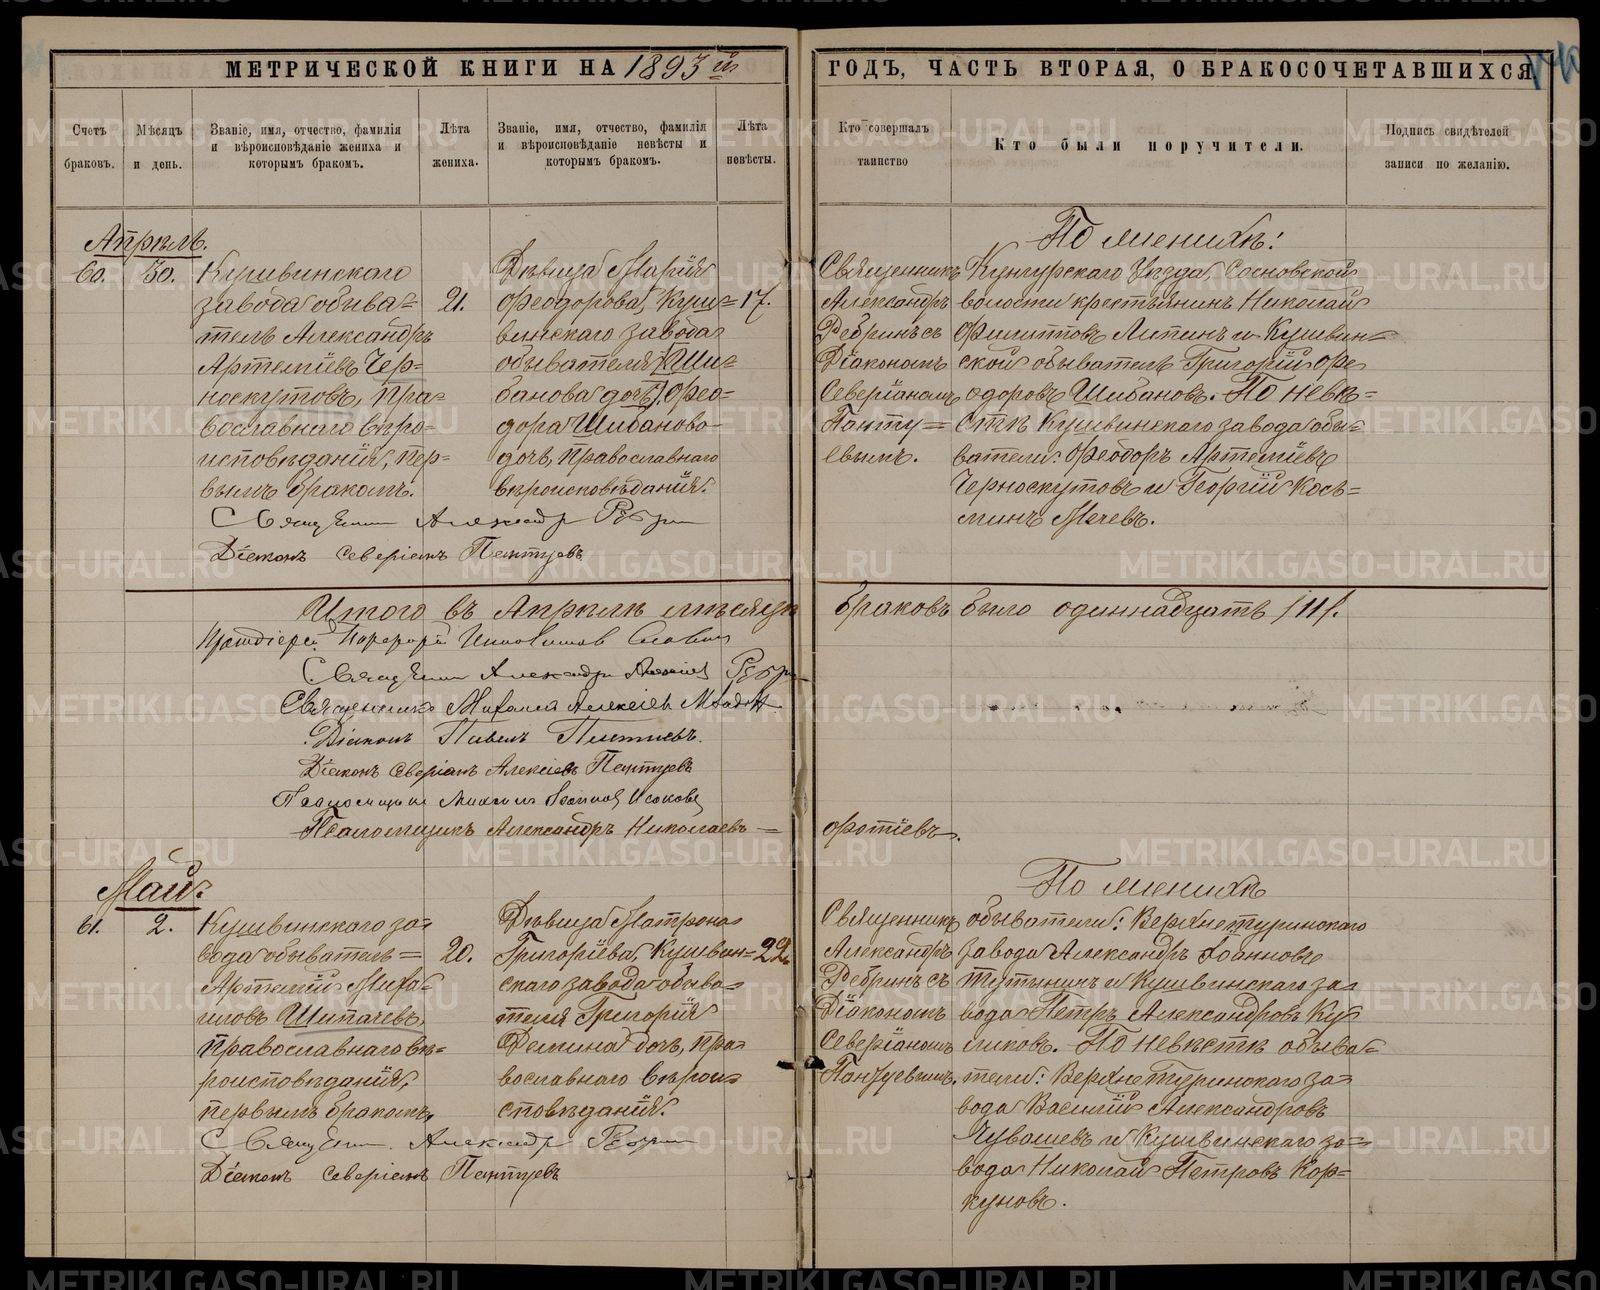 МЕТРИЧЕСКОЙ КНИГИ НА 1893 й ГОДЪ, ЧАСТЬ ВТОРАЯ, О БРАКОСОЧЕТАВШИХСЯ.
Счетъ браковъ.
Мѣсяцъ и день.
Званіе, имя, отчество, фамилія и вѣроисповѣданіе жениха и которымъ бракомъ.
Лѣта жениха.
Званіе, имя, отчество, фамилія и вѣроисповѣданіе невѣсты и которымъ бракомъ.
Лѣта невѣсты.
Кто совершалъ таинство
Кто были поручители.
Подпись свидѣтелей записи по желанію.
Апрѣль.
60.
30.
Кушвинскаго
завода обыва=
тель Александръ
Артеміевъ Чер=
носкутовъ, пра=
вославнаго вѣро=
исповѣданія, пер=
вымъ бракомъ.
21.
Дѣвица Марія
Феодорова, Куш=
винскаго завода
обывателя (Ши=
банова дочь) Фео=
дора Шибанова
дочь, православнаго
вѣроисповѣданія.
17.
Священникъ
Александръ
Ребринъ съ
Діакономъ
Северіаномъ
Панту=
евымъ.
По женихѣ:
Кунгурскаго уѣзда, Сосновской
волости крестьянинъ Николай
Филипповъ Липинъ и Кушвин=
ской обыватель Григорій Фе
одоровъ Шибановъ. По невѣ=
стѣ Кушвинскаго завода обы=
ватели: Феодоръ Артеміевъ
Черноскутовъ и Георгій Косъ=
минъ Мачевъ.
Священникъ Александръ Ребринъ
Діаконъ Северіанъ Пантуевъ
Итого въ Апрѣлѣ мѣсяцѣ браковъ было одиннадцать /11/.
Протоіерей
Священникъ Александръ Ребринъ
Священникъ Михаилъ Алексіевъ
Діаконъ Павелъ
Діаконъ Северіанъ Алексіевъ Пантуевъ
Псаломщикъ Михаилъ Исаковъ
Псаломщикъ Александръ Николаевъ =
Фотіевъ.
Май.
61.
2.
Кушвинскаго за=
вода обыватель=
Артемій Миха=
иловъ Шипачевъ,
православнаго вѣ=
роисповѣданія,
первымъ бракомъ.
20.
Дѣвица Матрона
Григоріева, Кушвин=
скаго завода обыва=
теля Григорія
Демина дочь, пра=
вославнаго вѣрои=
сповѣданія.
22.
Священникъ
Александръ
Ребринъ съ
Діакономъ
Северіаномъ
Пантуевымъ.
По женихѣ
обыватели: Верхнетуринскаго
завода Александръ Іоанновъ
Тутынинъ и Кушвинскаго за=
вода Петръ Александровъ Ку
ликовъ. По невѣстѣ обыва=
тели: Верхнетуринскаго за=
вода Василій Александровъ
Чувашевъ и Кушвинскаго за=
вода Николай Петровъ Кор=
куновъ.
Священникъ Александръ Ребринъ
Діаконъ Северіанъ Пантуевъ
METRIKI.GASO-URAL.RU